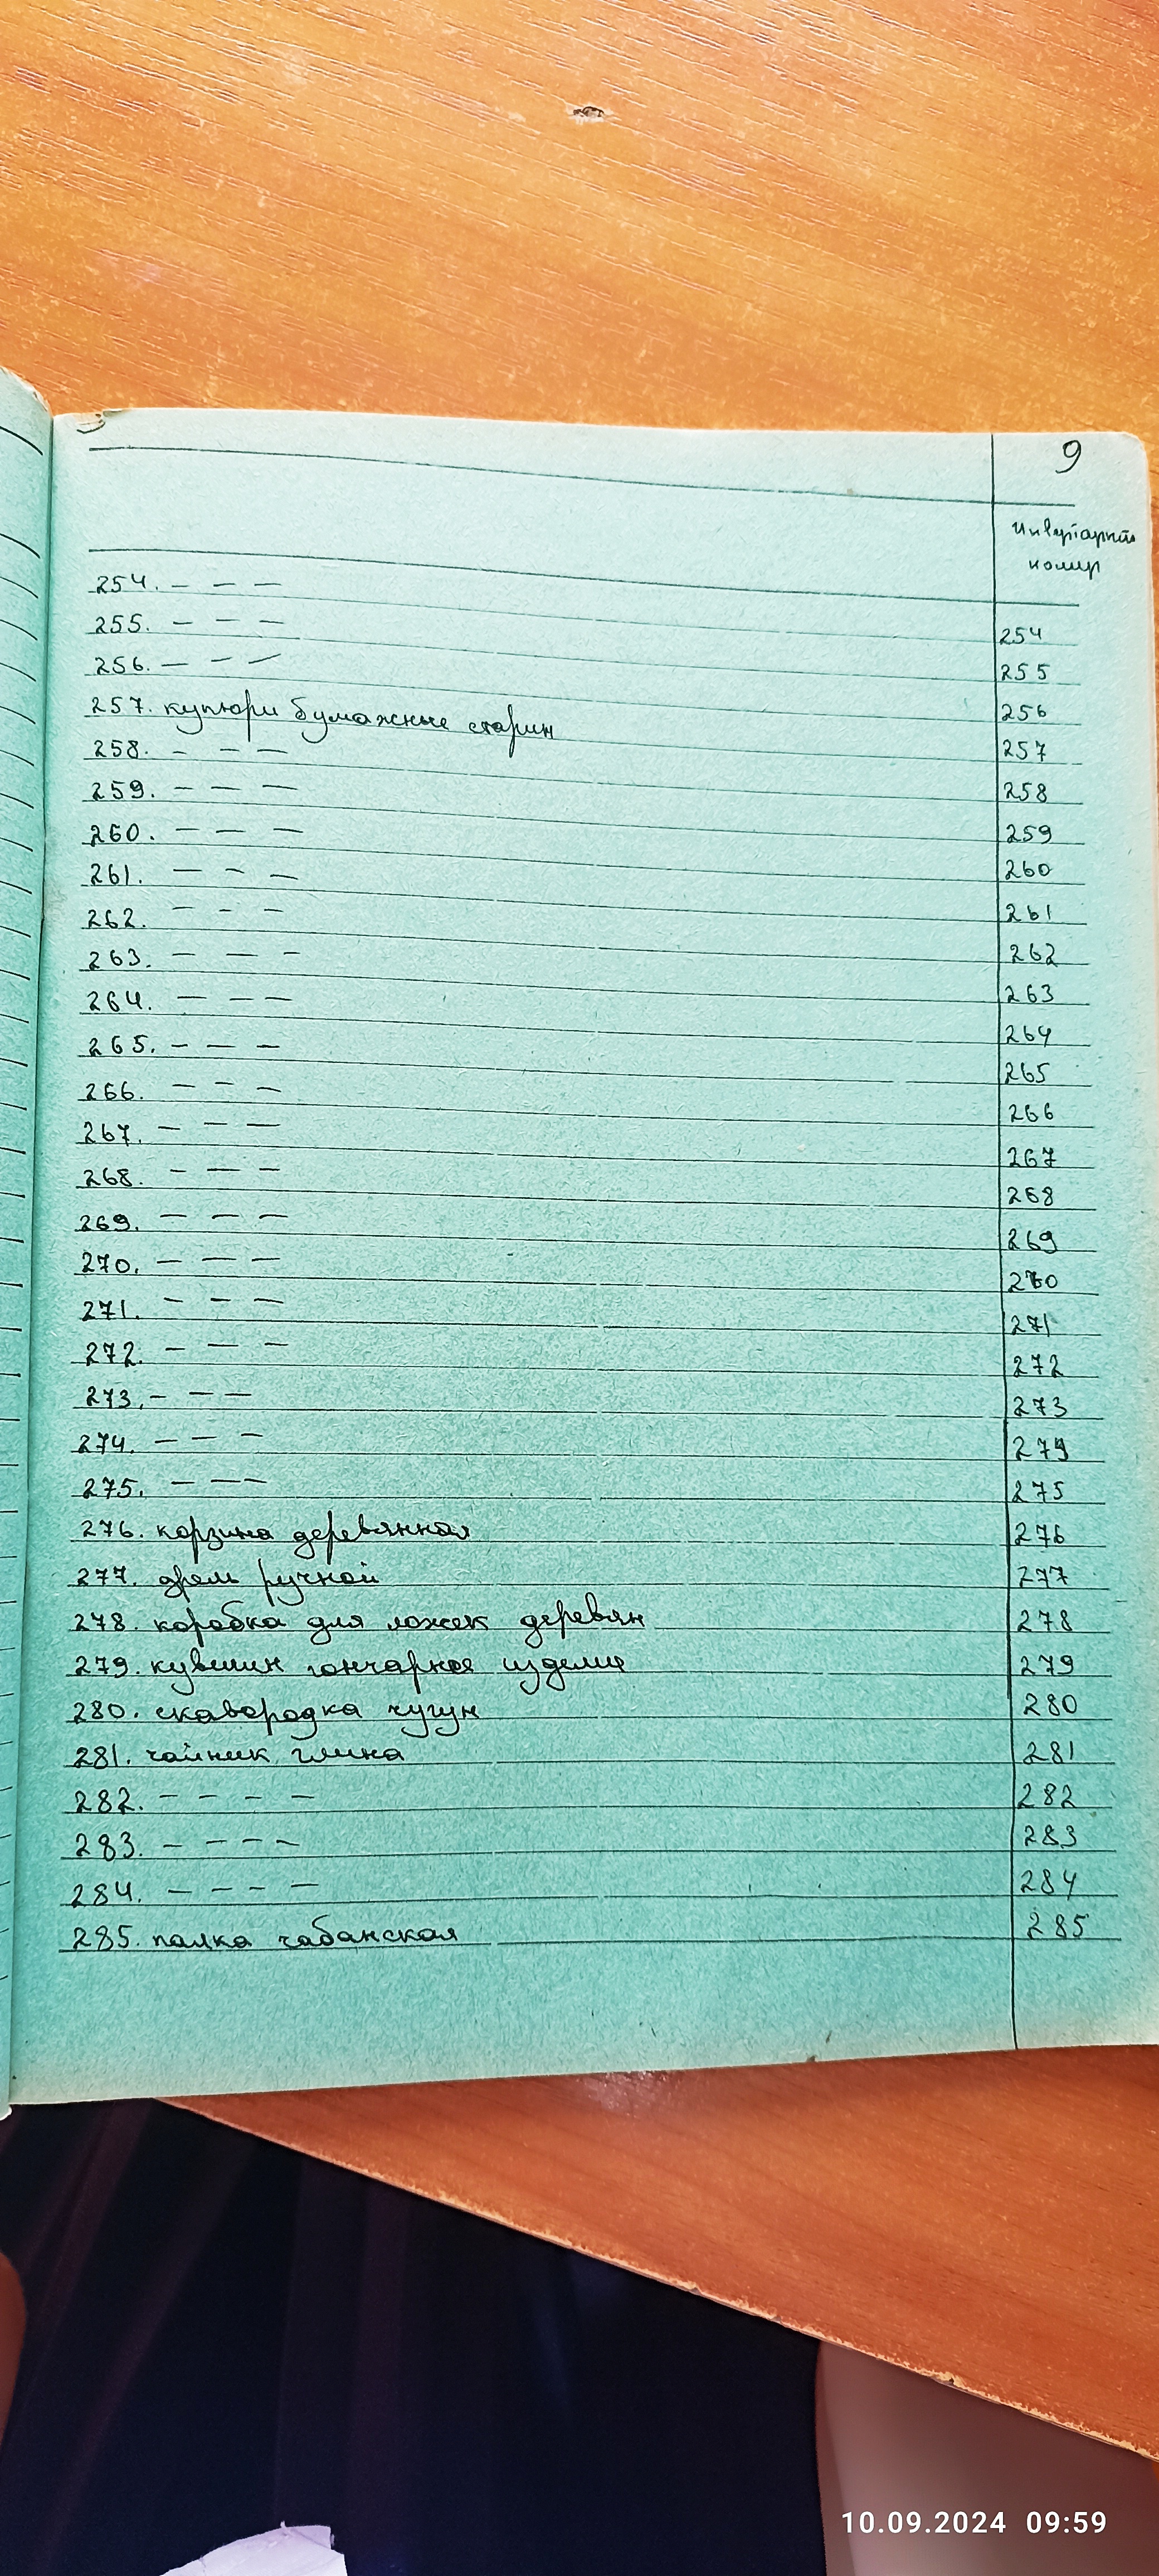 9
инвентарн
номер
254. — — — 254
255. — — — 255
256. — — — 256
257. купюри бумажные старин 257
258. — — — 258
259. — — — 259
260. — — — 260
261. — — — 261
262. — — — 262
263. — — — 263
264. — — — 264
265. — — — 265
266. — — — 266
267. — — — 267
268. — — — 268
269. — — — 269
270. — — — 270
271. — — — 271
272. — — — 272
273. — — — 273
274. — — — 274
275. — — — 275
276. корзина деревянная 276
277. дрель ручной 277
278. коробка для ложек деревян 278
279. кувшин гончарное изделие 279
280. скавородка чугун 280
281. чайник глина 281
282. — — — — 282
283. — — — — 283
284. — — — — 284
285. палка чабанская 285
10.09.2024 09:59